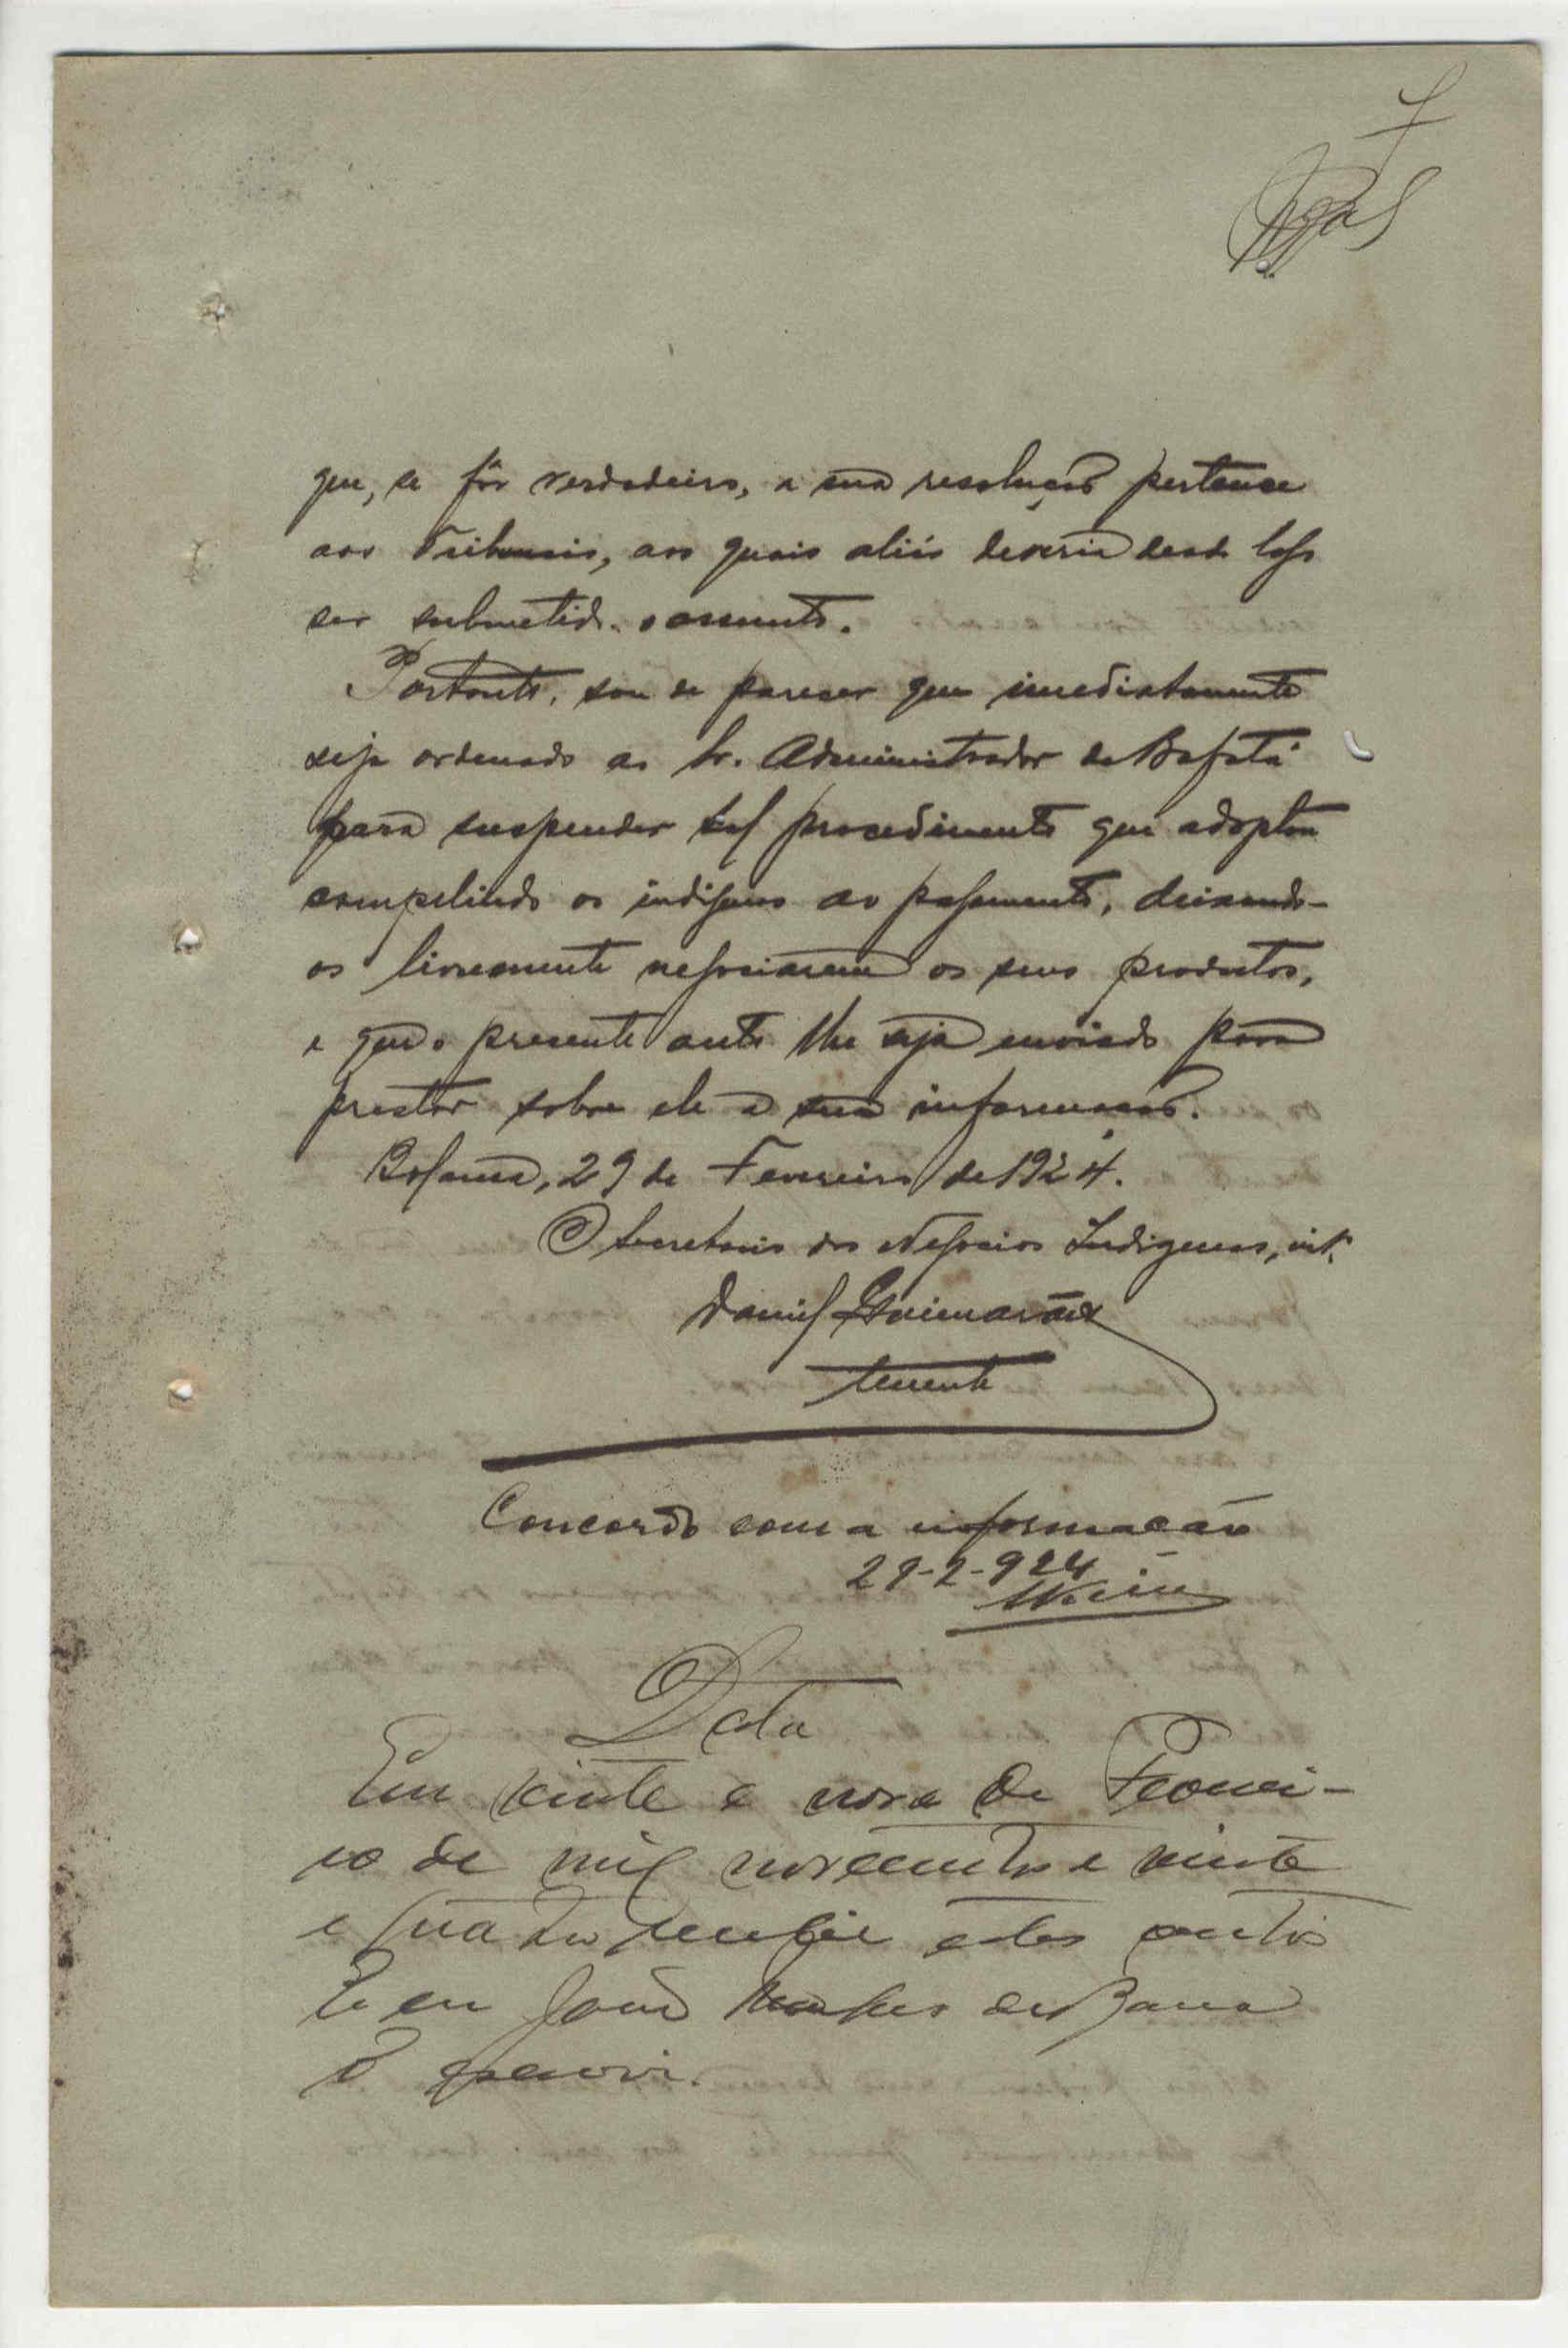 que, se fôr verdadeiro, a sua resolução pertence
aos Tribunais, aos quais aliás deveria desde logo
ser submetido o assunto.
Portanto, sou de parecer que imediatamente
seja ordenado ao Sr. Administrador de Bafatá
para suspender tal procedimento que adoptou
compelindo os indigenas ao pagamento, deixando-
os livremente negociarem os seus productos,
e que o presente auto lhe seja enviado para
prestar sobre ele a sua informação.
Bolama, 29 de Fevereiro de 1924.
O Secretario dos Negocios Indigenas, intº.
Daniel Guimarães
tenente
Concordo com a informação
29-2-924
Data
Em vinte e nove de Feverei-
ro de mil novecentos e vinte
e quatro recebi estes autos
E eu João de Barros
o escrevi.